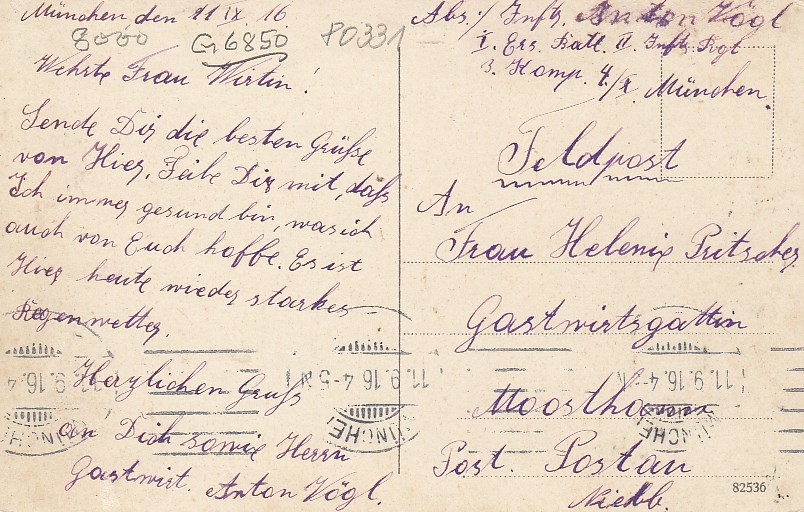 München den 11 IX. 16.
8000 G6850 P0331
Wehrte Frau Wirtin!
Sende Dir die besten Grüße
von Hier. Teile Dir mit, daß
Ich immer gesund bin, was ich
auch von Euch hoffe. Es ist
Hier heute wieder starkes
Regenwetter.
Herzlichen Gruß
an Dich sowie Herrn
Gastwirt. Anton Vögl.
Abs:/ Inftr. Anton Vögl
I. Ers. Batl. II. Inft. Rgt
3. Komp. 4/I München
Feldpost
An
Frau Helenie Pritscher
Gastwirtsgattin
Moosthann
Post. Postau
Niebb.
11.9.16. 4-5 N
MÜNCHEN
82536